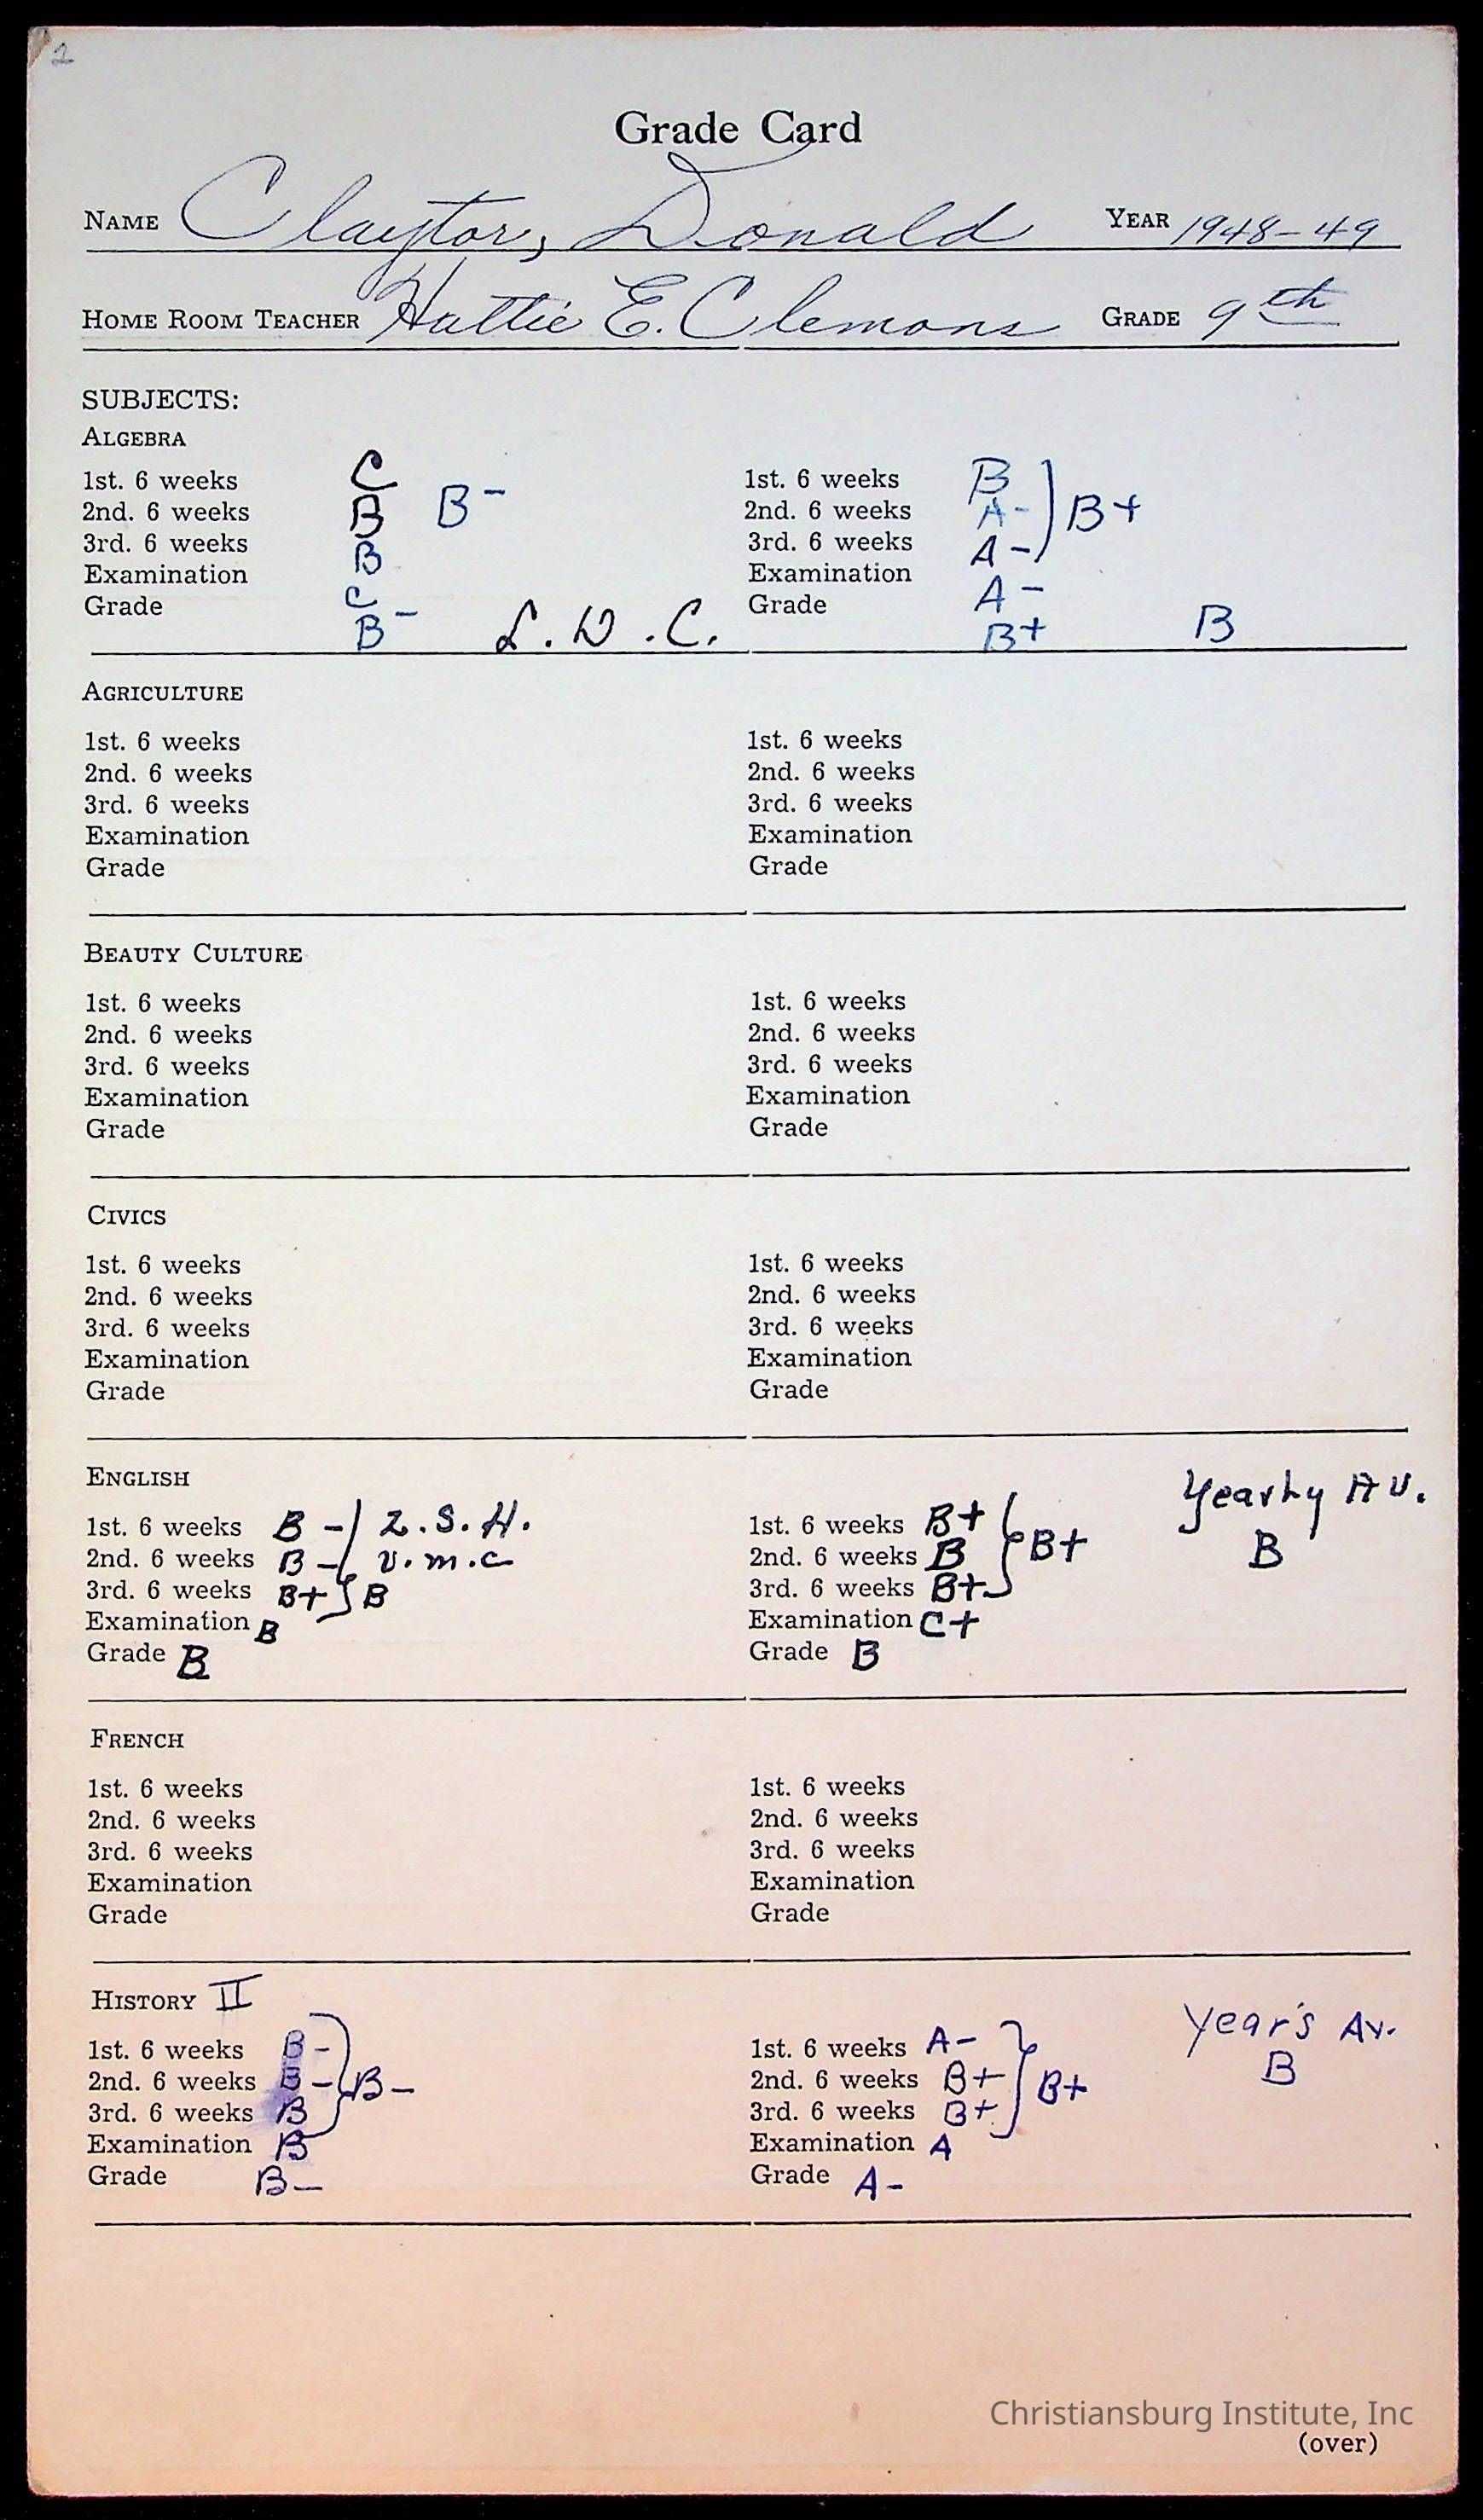 2
Grade Card
NAME Claytor, Donald YEAR 1948-49
HOME ROOM TEACHER Hattie E. Clemons GRADE 9th
SUBJECTS:
ALGEBRA
1st. 6 weeks C
2nd. 6 weeks B B-
3rd. 6 weeks B
Examination C
Grade B- L. W. C.
1st. 6 weeks B
2nd. 6 weeks A- B+
3rd. 6 weeks A-
Examination A-
Grade B+ B
AGRICULTURE
1st. 6 weeks
2nd. 6 weeks
3rd. 6 weeks
Examination
Grade
1st. 6 weeks
2nd. 6 weeks
3rd. 6 weeks
Examination
Grade
BEAUTY CULTURE
1st. 6 weeks
2nd. 6 weeks
3rd. 6 weeks
Examination
Grade
1st. 6 weeks
2nd. 6 weeks
3rd. 6 weeks
Examination
Grade
CIVICS
1st. 6 weeks
2nd. 6 weeks
3rd. 6 weeks
Examination
Grade
1st. 6 weeks
2nd. 6 weeks
3rd. 6 weeks
Examination
Grade
ENGLISH
1st. 6 weeks B- Z.S.H.
2nd. 6 weeks B- V.M.C
3rd. 6 weeks B+ B
Examination B
Grade B
1st. 6 weeks B+
2nd. 6 weeks B B+
3rd. 6 weeks B+
Examination C+
Grade B
Yearly Av.
B
FRENCH
1st. 6 weeks
2nd. 6 weeks
3rd. 6 weeks
Examination
Grade
1st. 6 weeks
2nd. 6 weeks
3rd. 6 weeks
Examination
Grade
HISTORY II
1st. 6 weeks B-
2nd. 6 weeks B- B-
3rd. 6 weeks B
Examination B
Grade B-
1st. 6 weeks A-
2nd. 6 weeks B+ B+
3rd. 6 weeks B+
Examination A
Grade A-
Year's Av.
B
Christiansburg Institute, Inc
(over)